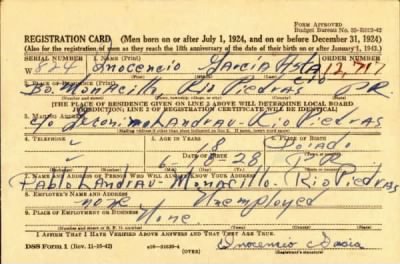 FORM APPROVED
REGISTRATION CARD (Men born on or after July 1, 1924, and on or before December 31, 1924)
(Also for the registration of men as they reach the 18th anniversary of the date of their birth on or after January 1, 1943.)
SERIAL NUMBER 1. NAME (Print) ORDER NUMBER
Inocencio Garcia 12,717
(First) (Middle) (Last)
2. PLACE OF RESIDENCE (Print)
Bo. Monacillo Rio Piedras PR
[THE PLACE OF RESIDENCE GIVEN ON LINE 2 ABOVE WILL DETERMINE LOCAL BOARD
JURISDICTION; LINE 2 OF REGISTRATION CERTIFICATE WILL BE IDENTICAL]
3. MAILING ADDRESS
c/o Landrau - Rio Piedras
4. TELEPHONE 5. AGE IN YEARS 6. PLACE OF BIRTH
18
DATE OF BIRTH
PR
7. NAME AND ADDRESS OF PERSON WHO WILL ALWAYS KNOW YOUR ADDRESS
Pablo Landrau - Monacillo - Rio Piedras
8. EMPLOYER'S NAME AND ADDRESS
none Unemployed
9. PLACE OF EMPLOYMENT OR BUSINESS
None
I AFFIRM THAT I HAVE VERIFIED ABOVE ANSWERS AND THAT THEY ARE TRUE.
DSS Form 1 (Rev. 11-16-42) (OVER) Inocencio Garcia
(Registrant's signature)